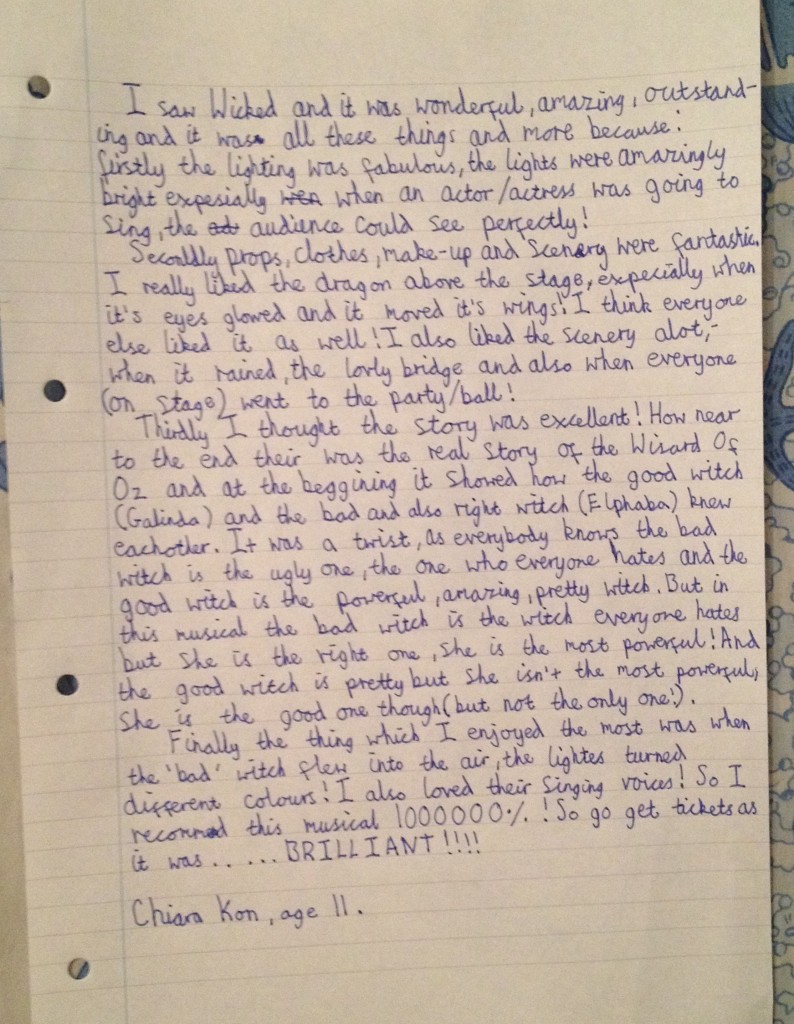 I saw Wicked and it was wonderful, amazing, outstand-
ing and it was all these things and more because:
firstly the lighting was fabulous, the lights were amazingly
bright expesially when an actor/actress was going to
sing, the audience could see perfectly!
Seconldly props, clothes, make-up and scenery were fantastic.
I really liked the dragon above the stage, expecially when
it's eyes glowed and it moved it's wings! I think everyone
else liked it as well! I also liked the scenery alot,-
when it rained, the lovly bridge and also when everyone
(on stage) went to the party/ball!
Thirdly I thought the story was excellent! How near
to the end their was the real story of the Wisard Of
Oz and at the beggining it showed how the good witch
(Galinda) and the bad and also right witch (Elphaba) knew
eachother. It was a twist, as everybody knows the bad
witch is the ugly one, the one who everyone hates and the
good witch is the powerful, amazing, pretty witch. But in
this musical the bad witch is the witch everyone hates
but she is the right one, she is the most powerful! And
the good witch is pretty but she isn't the most powerful,
she is the good one though (but not the only one!).
Finally the thing which I enjoyed the most was when
the 'bad' witch flew into the air, the lightes turned
different colours! I also loved their singing voices! So I
recommed this musical 1000000%! So go get tickets as
it was. . . . . . BRILLIANT!!!!
Chiara Kon, age 11.